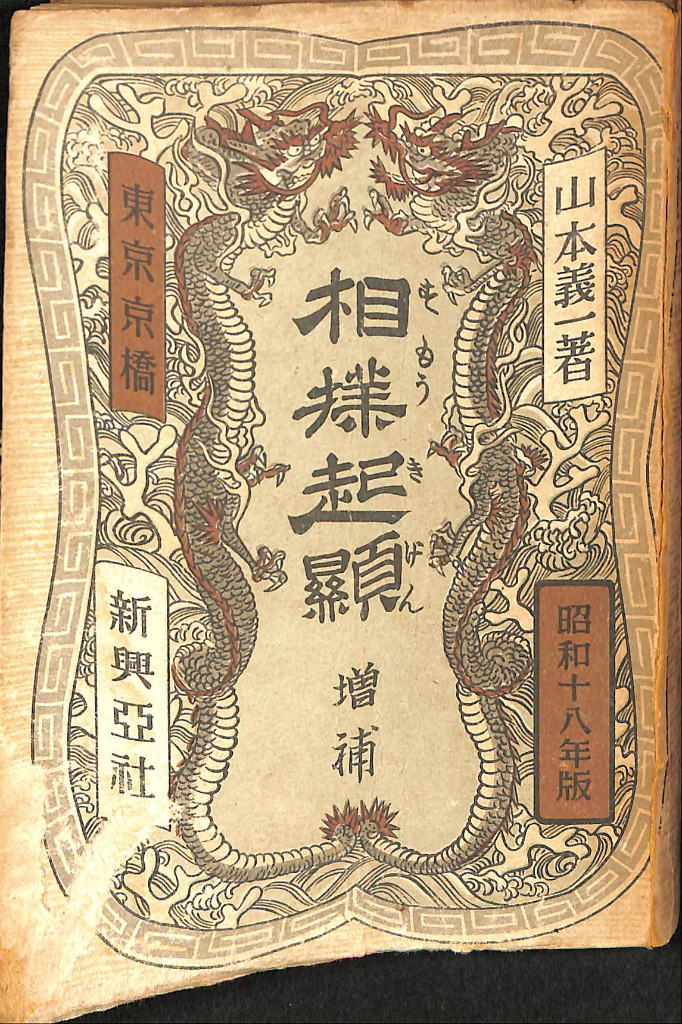 山本義一著
昭和十八年版
相撲起顯
すもうきげん
増補
東京京橋
新興亞社